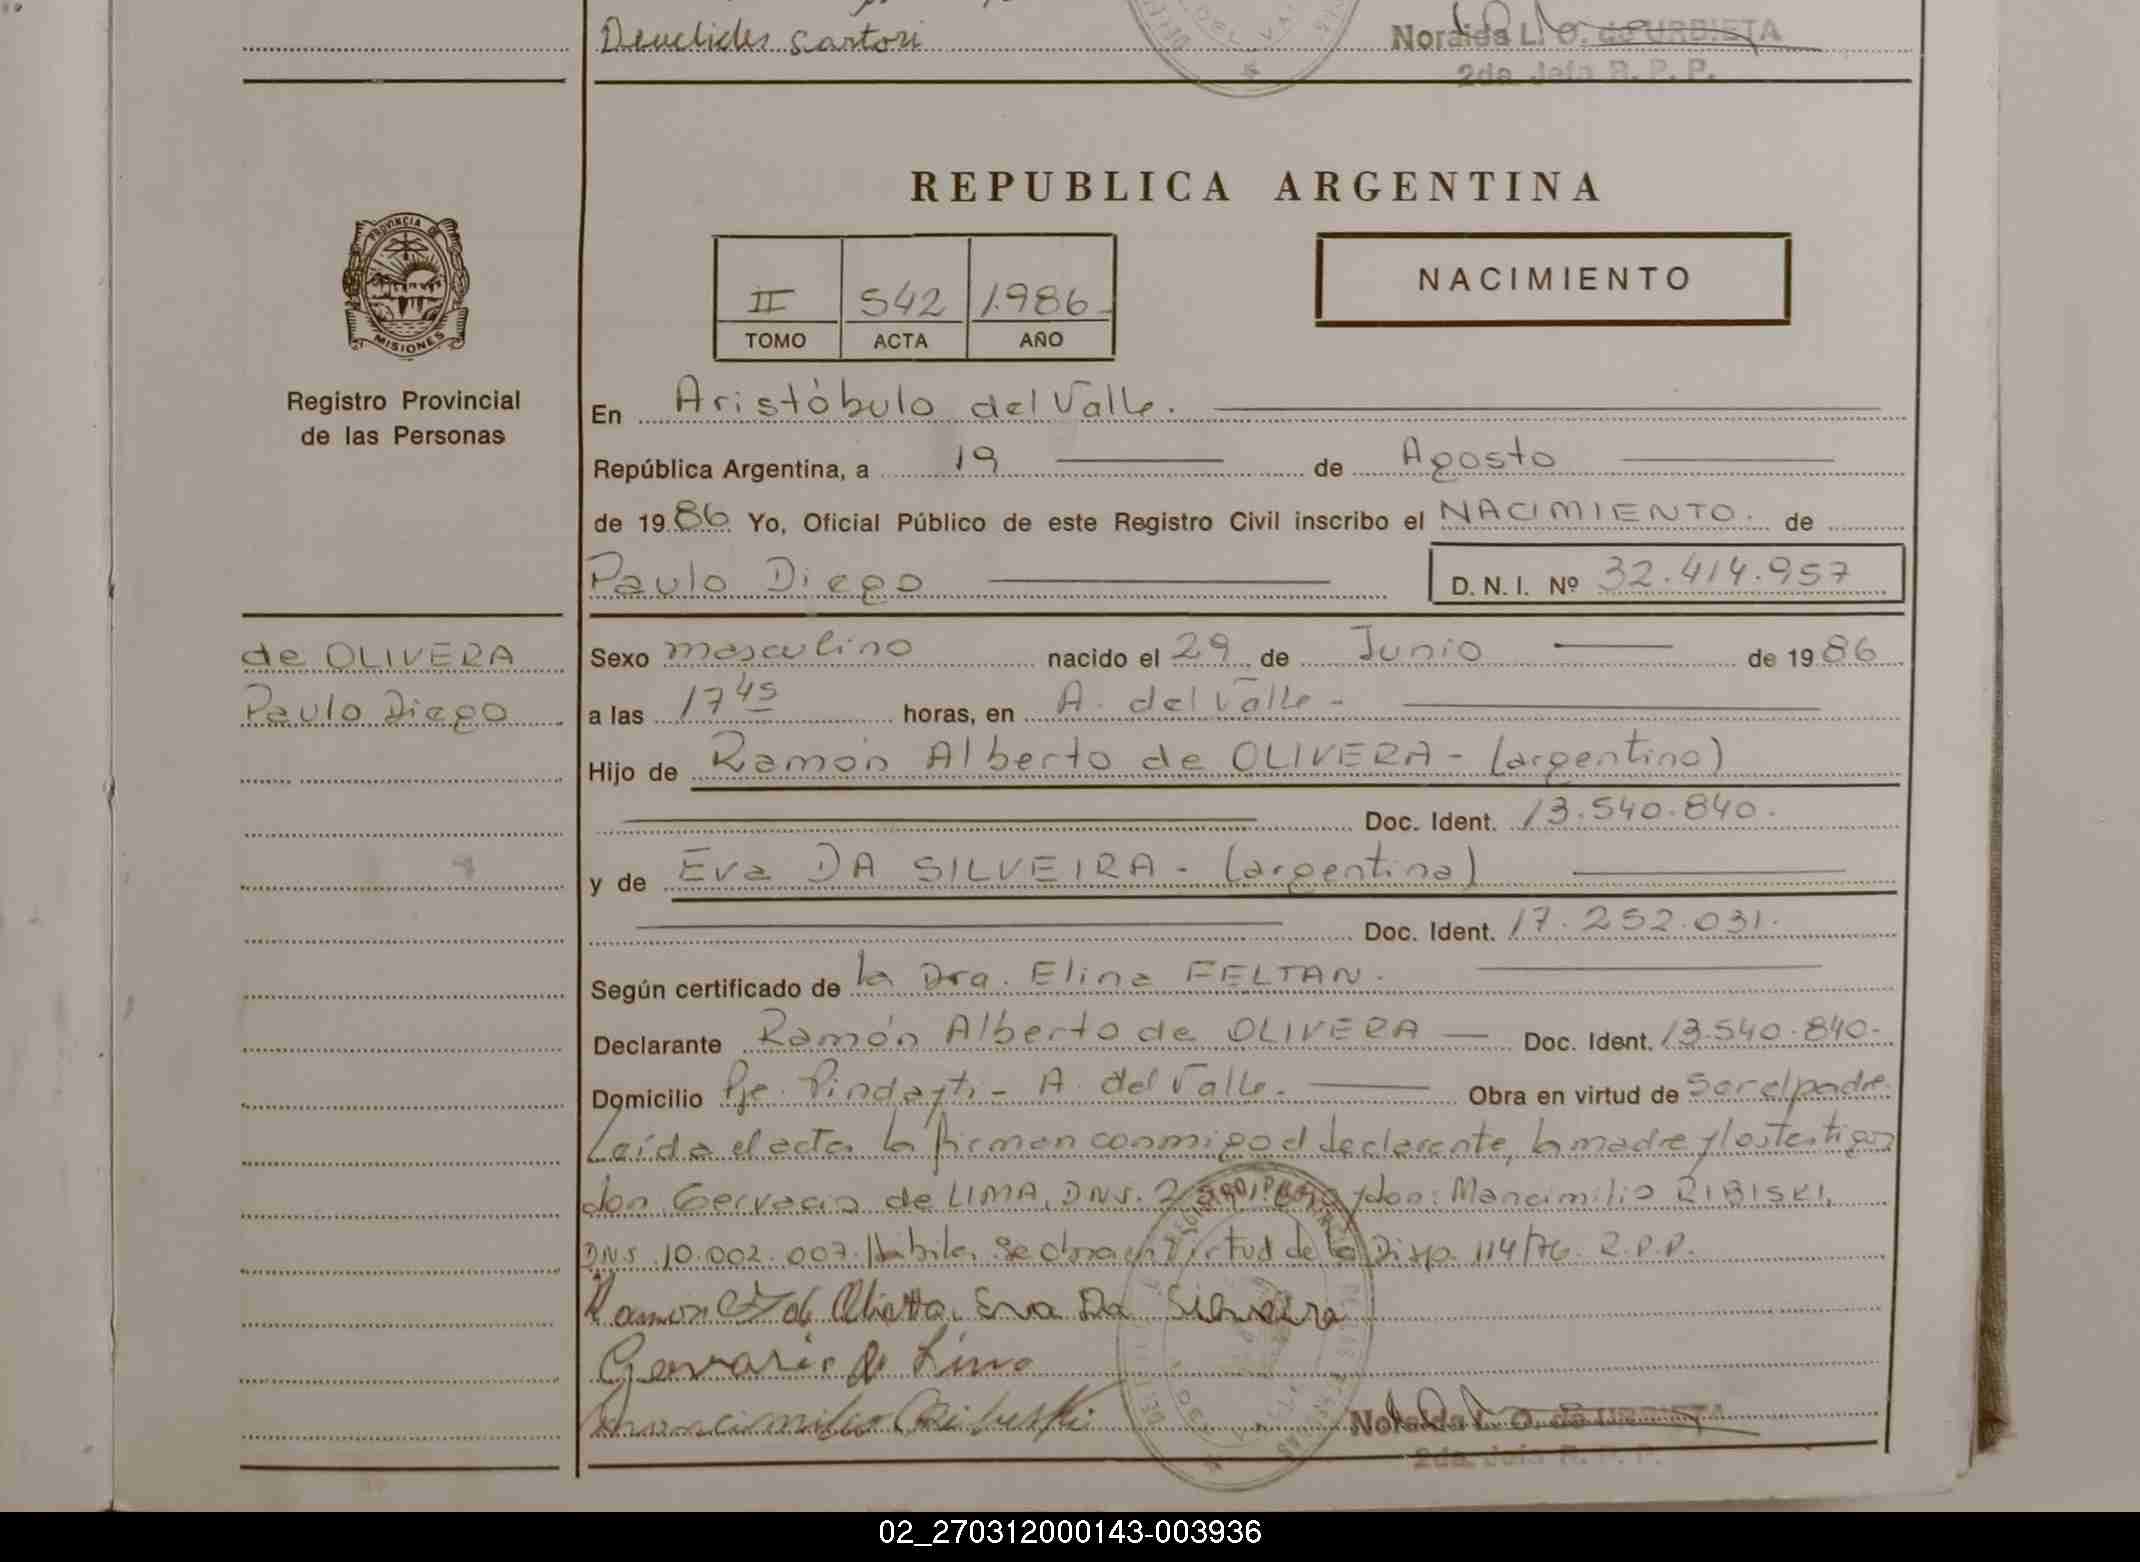 Deuclides Sartori
Noralda L. O. de URBIETA
2da. Jefa R. P. P.
REPUBLICA ARGENTINA
PROVINCIA DE
MISIONES
II 542 1.986
TOMO ACTA AÑO
NACIMIENTO
Registro Provincial
de las Personas
En Aristóbulo del Valle.
República Argentina, a 19 de Agosto
de 1986 Yo, Oficial Público de este Registro Civil inscribo el NACIMIENTO. de
Paulo Diego D. N. I. Nº 32.414.957
de OLIVERA
Paulo Diego
Sexo masculino nacido el 29 de Junio de 1986
a las 17 45 horas, en A. del Valle -
Hijo de Ramón Alberto de OLIVERA - (argentino)
Doc. Ident. 13.540.840.
y de Eva DA SILVEIRA - (argentina)
Doc. Ident. 17.252.031.
Según certificado de la Dra. Elina FELTAN.
Declarante Ramón Alberto de OLIVERA Doc. Ident. 13.540.840-
Domicilio Pje. Pindayti - A. del Valle - Obra en virtud de ser el padre.
Leída el acta la firman conmigo el declarante, la madre y los testigos
don Gervacio de LIMA, DNI. y don: Mancimilio RIBISKI,
DNI. 10.002.007. Habile. Se obra en virtud de la Disp. 114/76. R.P.P.
Ramon de Eva Da Silveira
Gervacio de Lima
Noralda L. O. de URBIETA
2da. Jefa R. P. P.
02_270312000143-003936